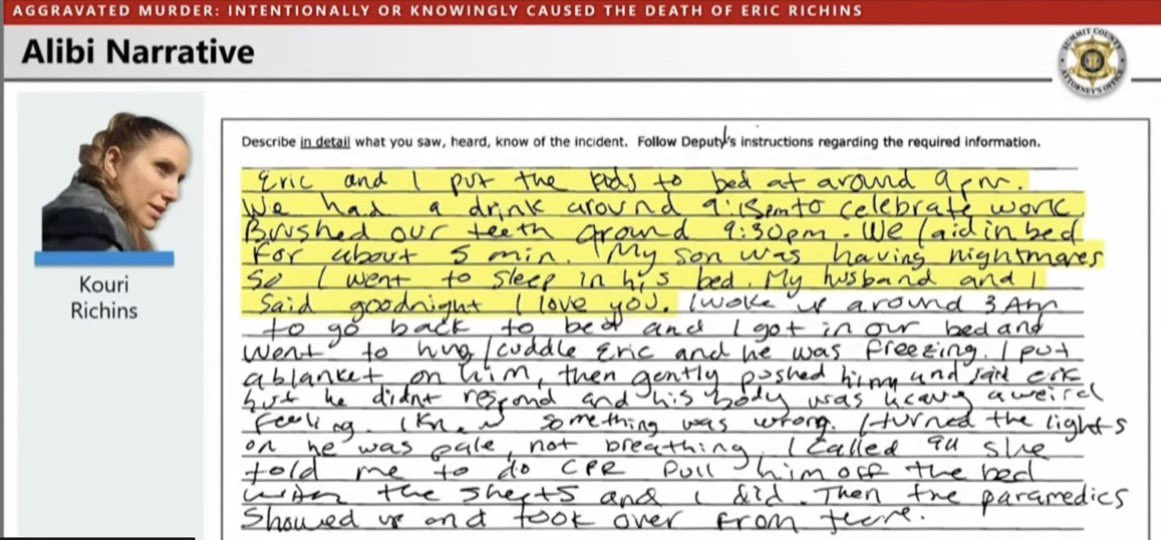 AGGRAVATED MURDER: INTENTIONALLY OR KNOWINGLY CAUSED THE DEATH OF ERIC RICHINS
Alibi Narrative
SUMMIT COUNTY
ATTORNEY'S OFFICE
Kouri
Richins
Describe in detail what you saw, heard, know of the incident. Follow Deputy's instructions regarding the required information.
Eric and I put the kids to bed at around 9pm.
We had a drink around 9:15pm to celebrate work.
Brushed our teeth around 9:30pm. We laid in bed
For about 5 min. My son was having nightmares
So I went to sleep in his bed. My husband and I
Said goodnight I love you. I woke up around 3 Am
to go back to bed and I got in our bed and
went to hug/cuddle Eric and he was freezing. I put
a blanket on him, then gently pushed him and said eric
but he didnt respond and his body was heavy a weird
feeling. I knew something was wrong. I turned the lights
on he was pale, not breathing. I called 911 she
told me to do CPR pull him off the bed
with the sheets and I did. Then the paramedics
Showed up and took over from there.